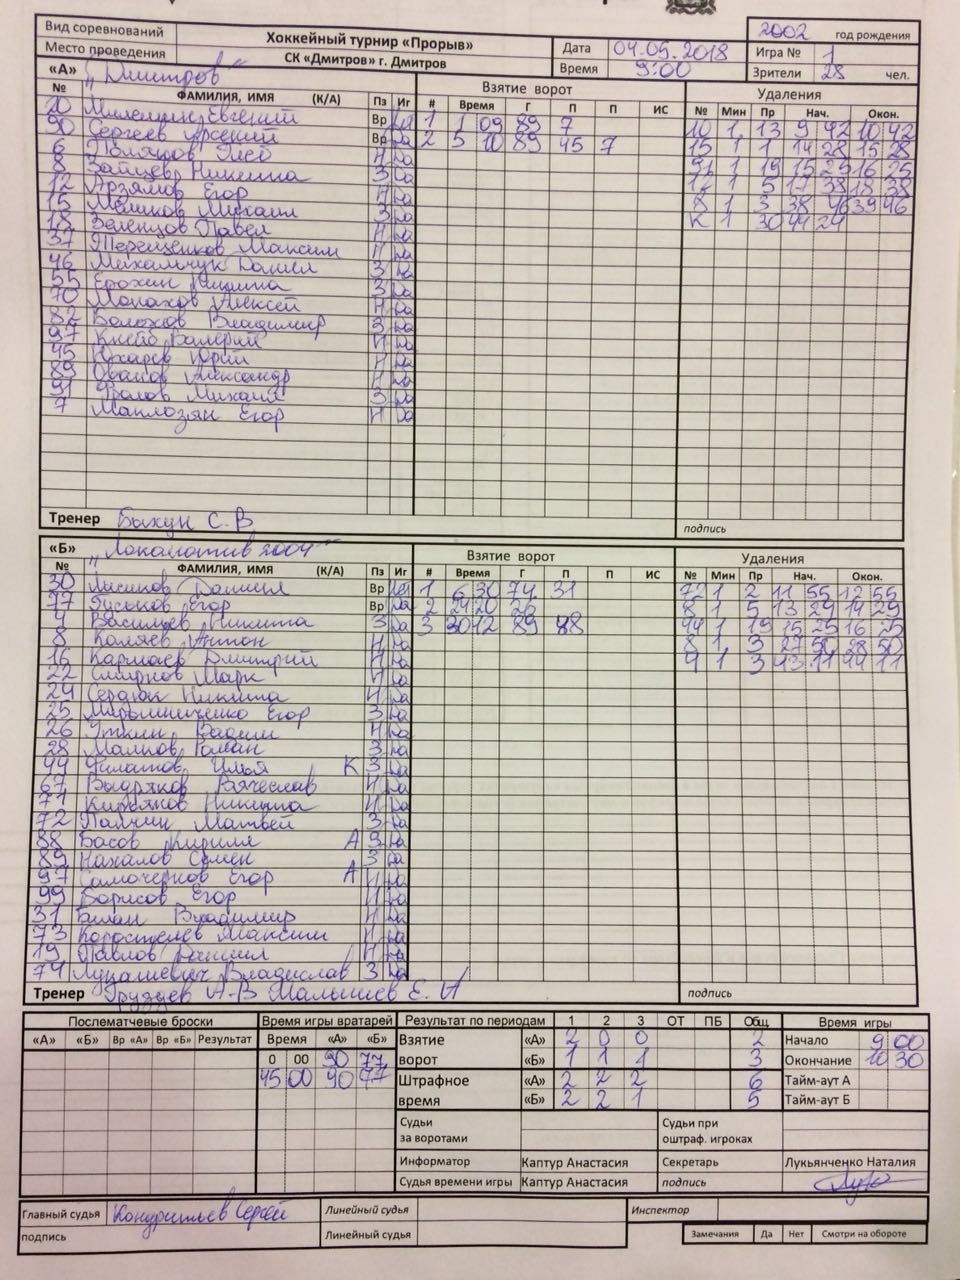 Вид соревнований Хоккейный турнир «Прорыв» 2002 год рождения
Место проведения СК «Дмитров» г. Дмитров Дата 04.05.2018 Игра № 1
Время 9:00 Зрители 28 чел.
«А» "Дмитров" Взятие ворот Удаления
№ ФАМИЛИЯ, ИМЯ (К/А) Пз Иг # Время Г П П ИС № Мин Пр Нач. Окон.
20 Евгений Вр 1 1 09 89 7 10 1 13 9 42 10 42
90 Сергеев Арсений Вр Да 2 5 10 89 45 7 15 1 1 14 28 15 28
6 Поляков Глеб Н Да 91 1 19 15 25 16 25
8 Зайцев Никита З Да 12 1 5 17 38 18 38
12 Арзямов Егор Н Да 8 1 3 38 46 39 46
15 Мешков Михаил З Да К 1 30 44 24
18 Зеленцов Павел Н Да
37 Терещенков Максим Н Да
46 Михальчук Даниел З Да
55 Ерохин Никита З Да
70 Монахов Алексей Н Да
82 Болохов Владимир З Да
97 Валерий Н Да
45 Юхарев Юрий Н Да
89 Александр Н Да
91 Фролов Михаил З Да
7 Маклозян Егор Н Да
Тренер Бахун С.В
подпись
«Б» "Локомотив 2004" Взятие ворот Удаления
№ ФАМИЛИЯ, ИМЯ (К/А) Пз Иг # Время Г П П ИС № Мин Пр Нач. Окон.
30 Лисиков Даниил Вр Нет 1 6 30 74 31 72 1 2 11 55 12 55
77 Гуськов Егор Вр Да 2 24 20 26 8 1 5 13 29 14 29
4 Васильев Никита З Да 3 30 12 89 88 44 1 19 15 25 16 25
8 Каляев Антон Н Да 8 1 3 27 50 28 50
16 Кармаев Дмитрий Н Да 4 1 3 43 11 44 11
22 Смирнов Марк Н Да
24 Сердюк Никита Н Да
25 Мирошниченко Егор З Да
26 Уткин Вадим Н Да
28 Малков Роман З Да
44 Филатов Илья К З Да
67 Выдряков Вячеслав Н Да
71 Кирьяков Никита Н Да
72 Папчин Матвей З Да
88 Басов Кирилл А З Да
89 Нахалов Семен З Да
97 Самочернов Егор А Н Да
99 Борисов Егор Н Да
31 Билан Владимир Н Да
73 Коростелев Максим Н Да
19 Павлов Даниил Н Да
74 Лукашевич Владислав З Да
Тренер Груздев А.В Малышев Е. А
подпись
Послематчевые броски Время игры вратарей Результат по периодам 1 2 3 ОТ ПБ Общ. Время игры
«А» «Б» Вр «А» Вр «Б» Результат Время «А» «Б» Взятие «А» 2 0 0 2 Начало 9 00
0 00 90 77 ворот «Б» 1 1 1 3 Окончание 10 30
45 00 90 77 Штрафное «А» 2 2 2 6 Тайм-аут А
время «Б» 2 2 1 5 Тайм-аут Б
Судьи за воротами Судьи при оштраф. игроках
Информатор Каптур Анастасия Секретарь Лукьянченко Наталия
Судья времени игры Каптур Анастасия подпись
Главный судья Кондратьев Сергей Линейный судья Инспектор
подпись Линейный судья Замечания Да Нет Смотри на обороте